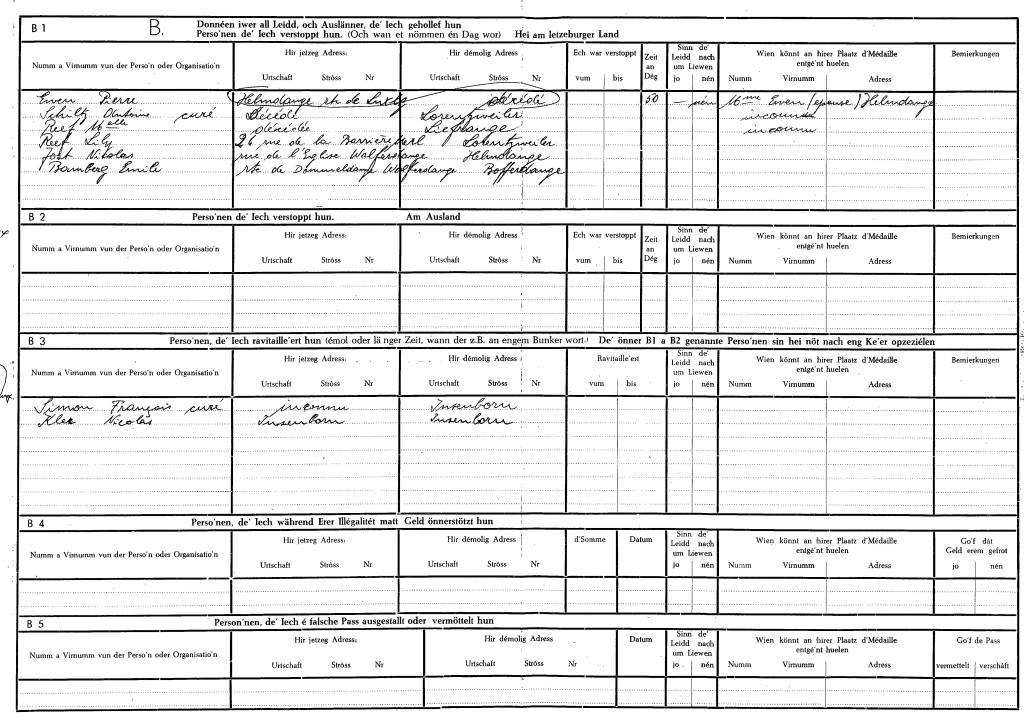 B 1 B. Donnéen iwer all Leidd, och Auslänner, de' Iech gehollef hun
Perso'nen de' Iech verstoppt hun. (Och wan et nömmen én Dag wor) Hei am letzeburger Land
Numm a Virnumm vun der Perso'n oder Organisatio'n Hir jetzeg Adress: Hir démolig Adress Ech war verstoppt Zeit an Dég Sinn de' Leidd nach um Liewen Wien könnt an hirer Plaatz d'Médaille entgé'nt huelen Bemierkungen
Urtschaft Ströss Nr Urtschaft Ströss Nr vum bis jo nén Numm Virnumm Adress
Even Pierre Helmdange rte de Luxbg décédé 50 — nén Mme Even (épouse) Helmdange
Schiltz Antoine curé Décédé Lorentzweiler inconnu
Reef Melle décédée Liefrange inconnu
Reef Lily 26 rue de la Barrière Lorentzweiler
Jost Nikolas rue de l'Eglise Walferdange Helmdange
Bamberg Emile rte de Dommeldange Walferdange Bofferdange
B 2 Perso'nen de' Iech verstoppt hun. Am Ausland
Numm a Virnumm vun der Perso'n oder Organisatio'n Hir jetzeg Adress: Hir démolig Adress Ech war verstoppt Zeit an Dég Sinn de' Leidd nach um Liewen Wien könnt an hirer Plaatz d'Médaille entgé'nt huelen Bemierkungen
Urtschaft Ströss Nr Urtschaft Ströss Nr vum bis jo nén Numm Virnumm Adress
B 3 Perso'nen, de' Iech ravitaille'ert hun (émol oder länger Zeit, wann der z.B. an engem Bunker wort.) De' önner B1 a B2 genannte Perso'nen sin hei nöt nach eng Ke'er opzeziélen
Numm a Virnumm vun der Perso'n oder Organisatio'n Hir jetzeg Adress: Hir démolig Adress Ravitaille'ert Sinn de' Leidd nach um Liewen Wien könnt an hirer Plaatz d'Médaille entgé'nt huelen Bemierkungen
Urtschaft Ströss Nr Urtschaft Ströss Nr vum bis jo nén Numm Virnumm Adress
Simon François curé inconnu Insenborn
Klee Nicolas Insenborn Insenborn
B 4 Perso'nen, de' Iech während Erer Illégalitét matt Geld önnerstötzt hun
Numm a Virnumm vun der Perso'n oder Organisatio'n Hir jetzeg Adress: Hir démolig Adress d'Somme Datum Sinn de' Leidd nach um Liewen Wien könnt an hirer Plaatz d'Médaille entgé'nt huelen Go'f dât Geld erem gefrot
Urtschaft Ströss Nr Urtschaft Ströss Nr jo nén Numm Virnumm Adress jo nén
B 5 Person'nen, de' Iech é falsche Pass ausgestallt oder vermöttelt hun
Numm a Virnumm vun der Perso'n oder Organisatio'n Hir jetzeg Adress: Hir démolig Adress Datum Sinn de' Leidd nach um Liewen Wien könnt an hirer Plaatz d'Médaille entgé'nt huelen Go'f de Pass
Urtschaft Ströss Nr Urtschaft Ströss Nr jo nén Numm Virnumm Adress vermettelt verschâft